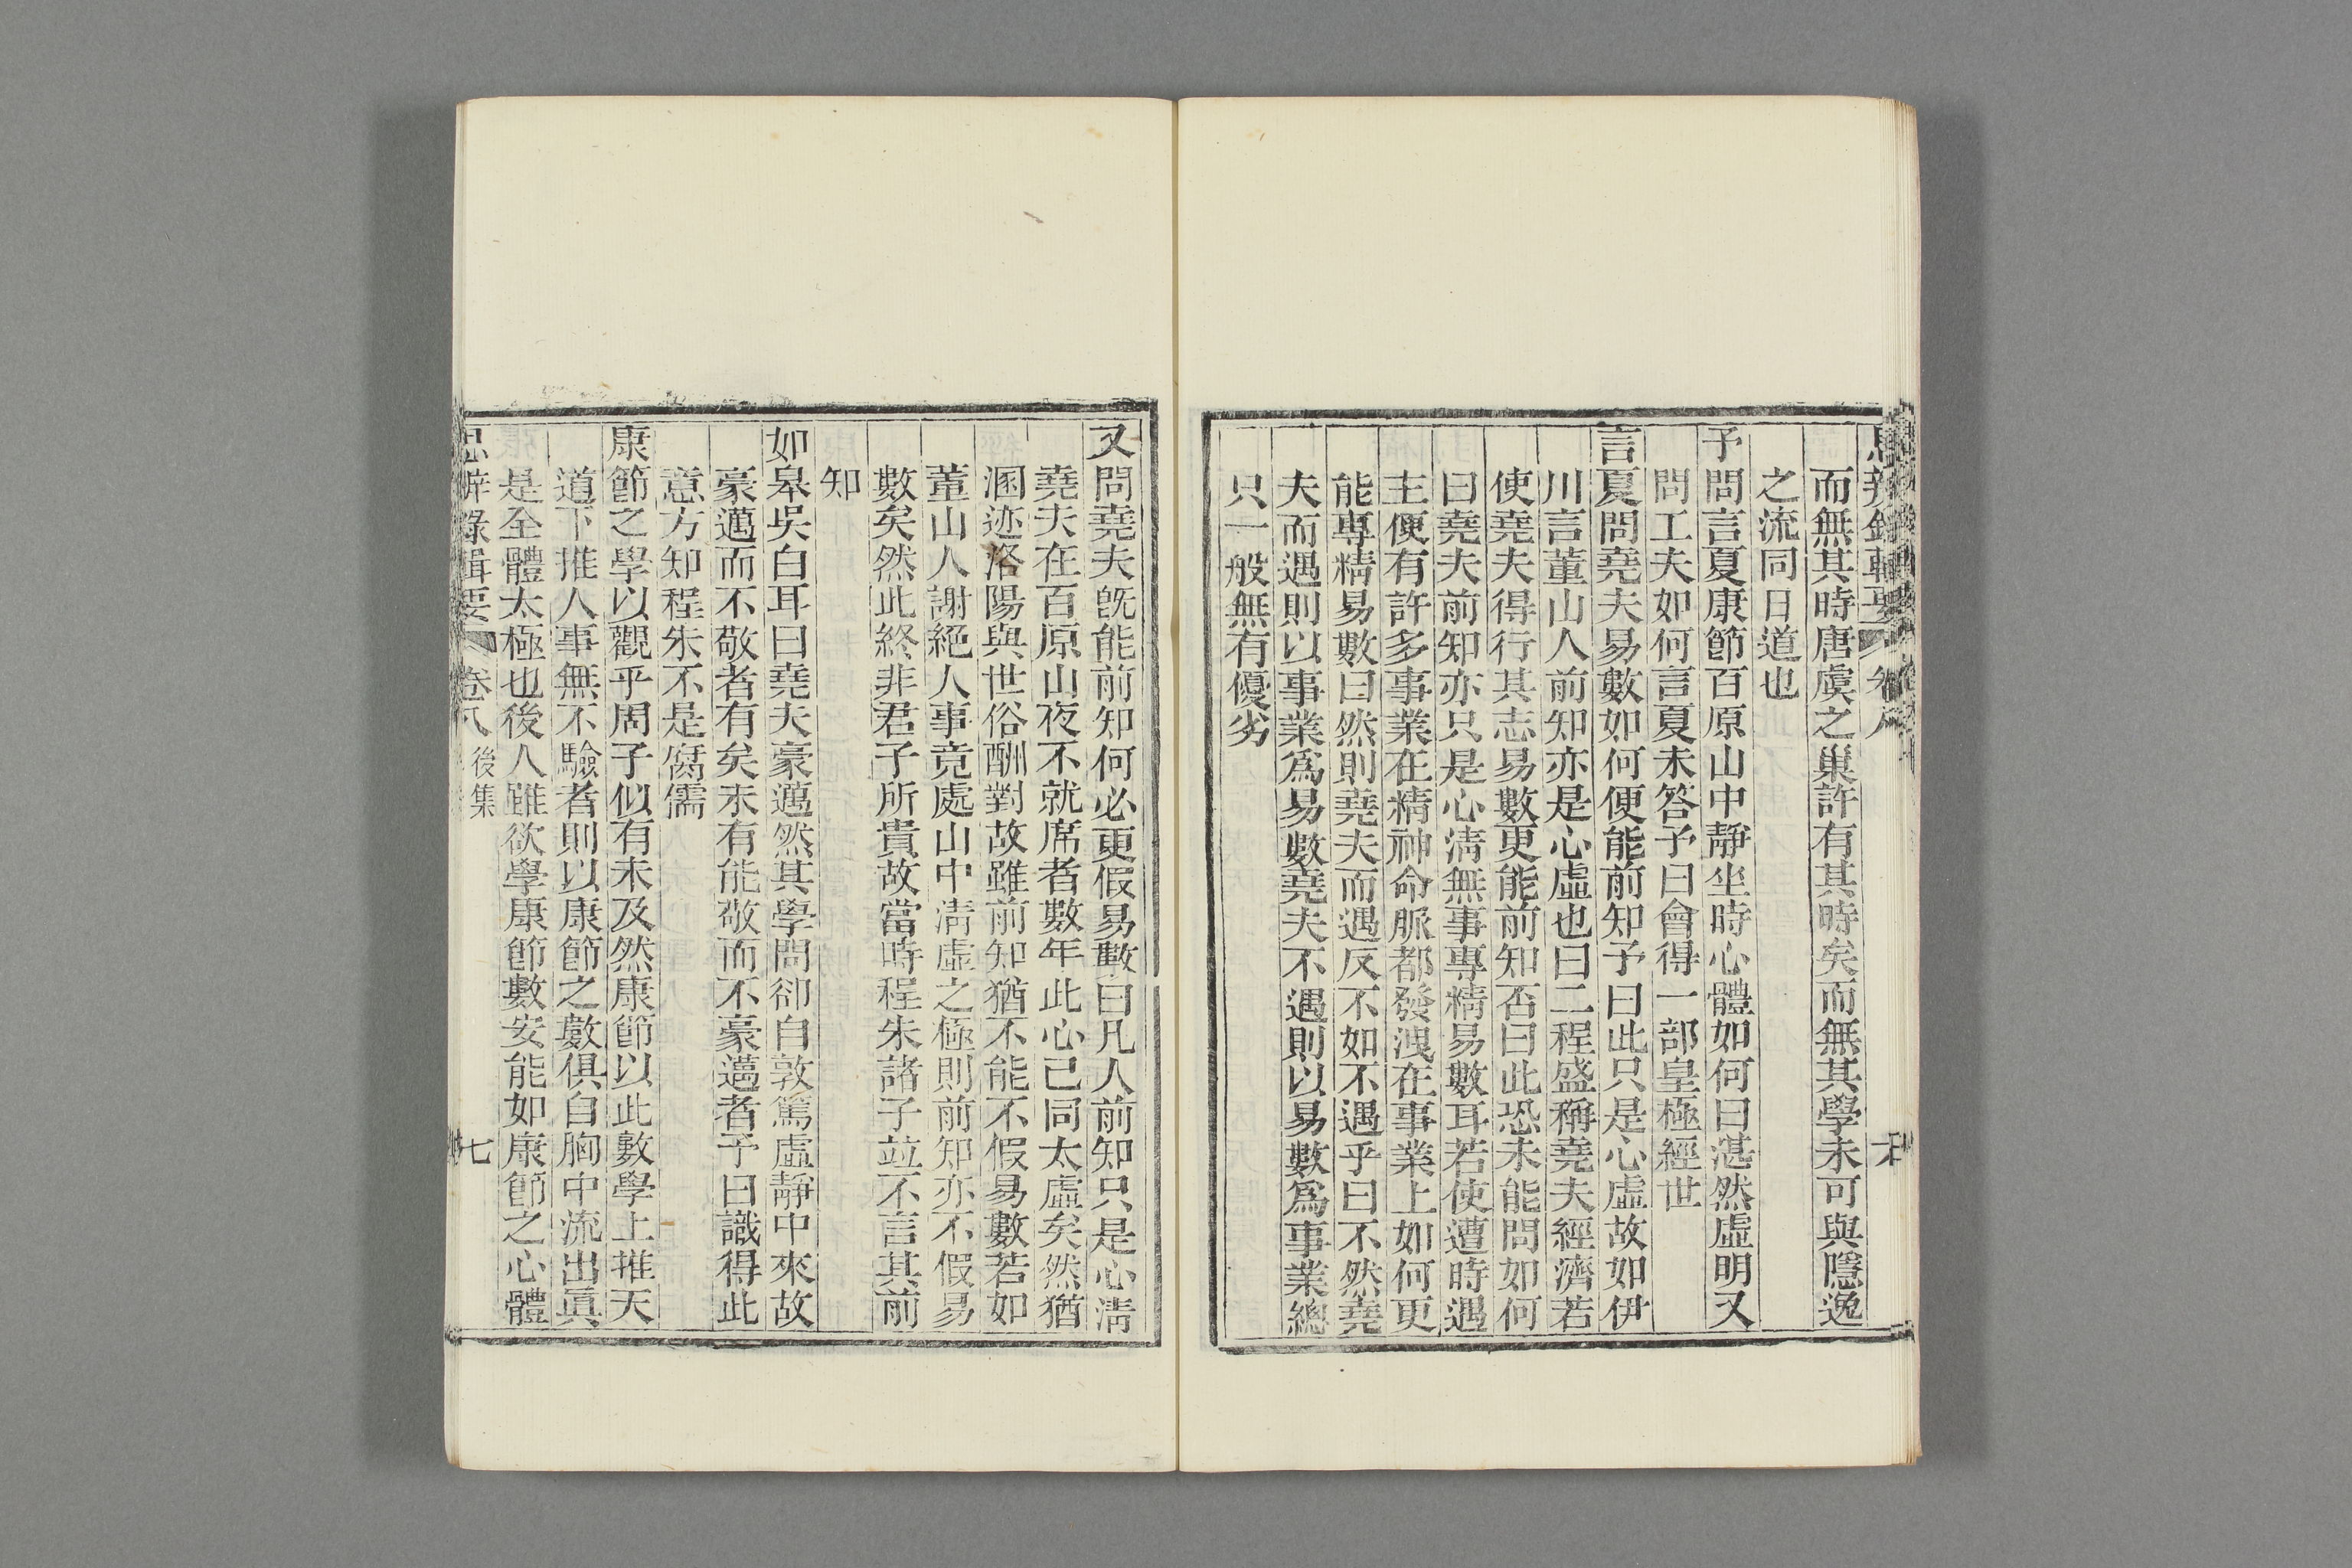 而無其時唐虞之巢許有其時矣而無其學未可與隱逸
之流同日道也
予問言夏康節百原山中靜坐時心體如何曰湛然虛明又
問工夫如何言夏未答予曰會得一部皇極經世
言夏問堯夫易數如何便能前知予曰此只是心虛故如伊
川言董山人前知亦是心虛也曰二程盛稱堯夫經濟若
使堯夫得行其志易數更能前知否曰此恐未能問如何
曰堯夫前知亦只是心清無事專精易數耳若使遭時遇
主便有許多事業在精神命脈都發洩在事業上如何更
能專精易數曰然則堯夫而遇反不如不遇乎曰不然堯
夫而遇則以事業爲易數堯夫不遇則以易數爲事業總
只一般無有優劣
又問堯夫旣能前知何必更假易數曰凡人前知只是心淸
堯夫在百原山夜不就席者數年此心已同太虛矣然猶
溷迹洛陽與世俗酬對故雖前知猶不能不假易數若如
董山人謝絕人事竟處山中淸虛之極則前知亦不假易
數矣然此終非君子所貴故當時程朱諸子竝不言其前
知
如皋吳白耳曰堯夫豪邁然其學問卻自敦篤虛靜中來故
豪邁而不敬者有矣未有能敬而不豪邁者予曰識得此
意方知程朱不是腐儒
康節之學以觀乎周子似有未及然康節以此數學上推天
道下推人事無不驗者則以康節之數俱自胸中流出眞
是全體太極也後人雖欲學康節數安能如康節之心體
思辨錄輯要 卷八 後集 七